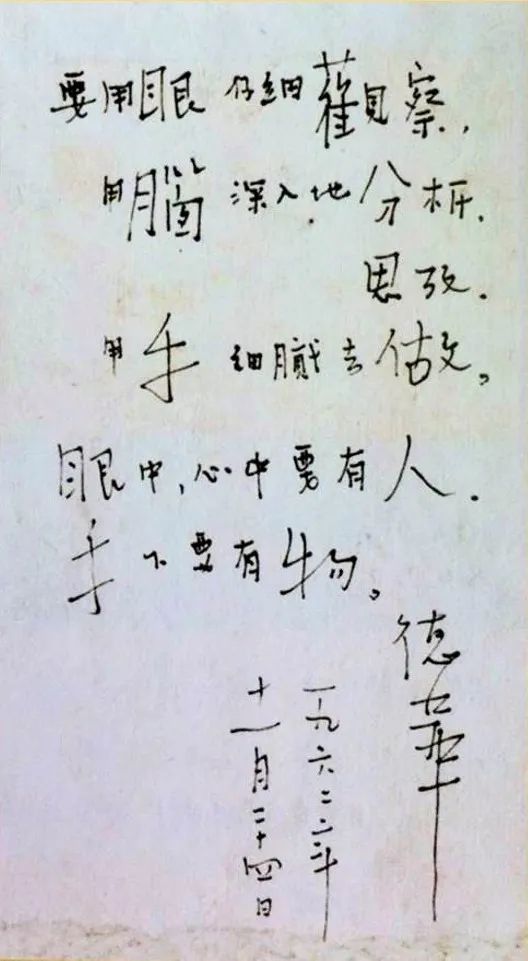 要用眼仔細觀察，
用腦深入地分析.
思攷.
用手細膩去做。
眼中,心中要有人.
手下要有物。
德華
一九六二年
十一月二十四日